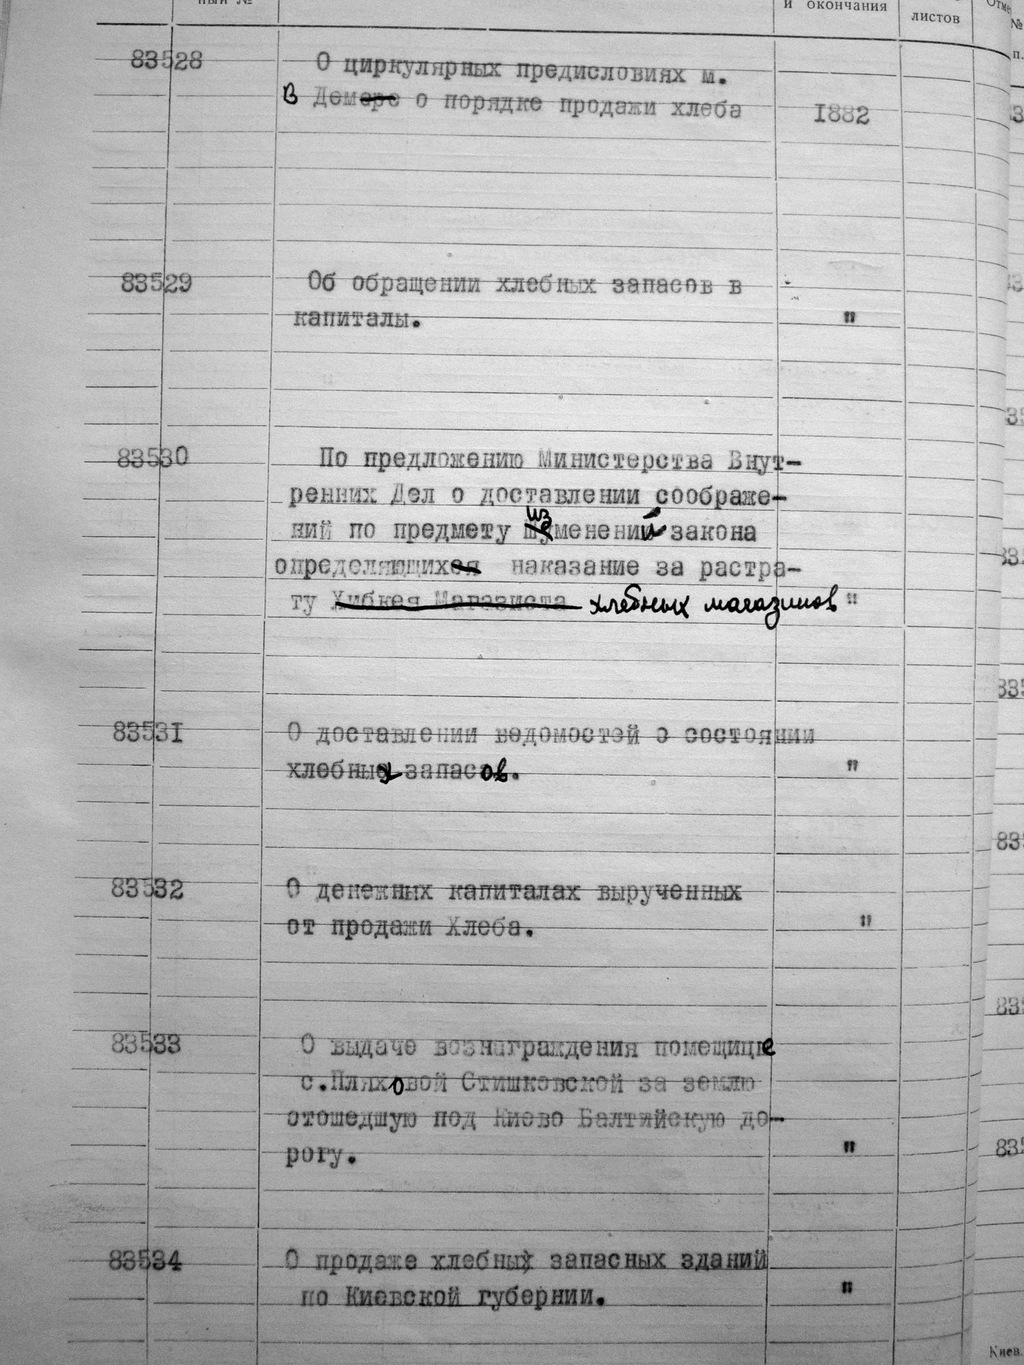 ный №
и окончания
листов
№
п.
83528
О циркулярных предисловиях м.
В Демере о порядке продажи хлеба
1882
83529
Об обращении хлебных запасов в
капиталы.
"
83530
По предложению Министерства Внут-
ренних Дел о доставлении соображе-
ний по предмету изменений закона
определяющих наказание за растра-
ту Хибкея Магазиста хлебных магазинов "
83531
О доставлении ведомостей о состоянии
хлебных запасов.
"
83532
О денежных капиталах вырученных
от продажи Хлеба.
"
83533
О выдаче вознаграждения помещице
с.Пляховой Стишковской за землю
отошедшую под Киево Балтийскую до-
рогу.
"
83534
О продаже хлебных запасных зданий
по Киевской губернии.
"
Киев.